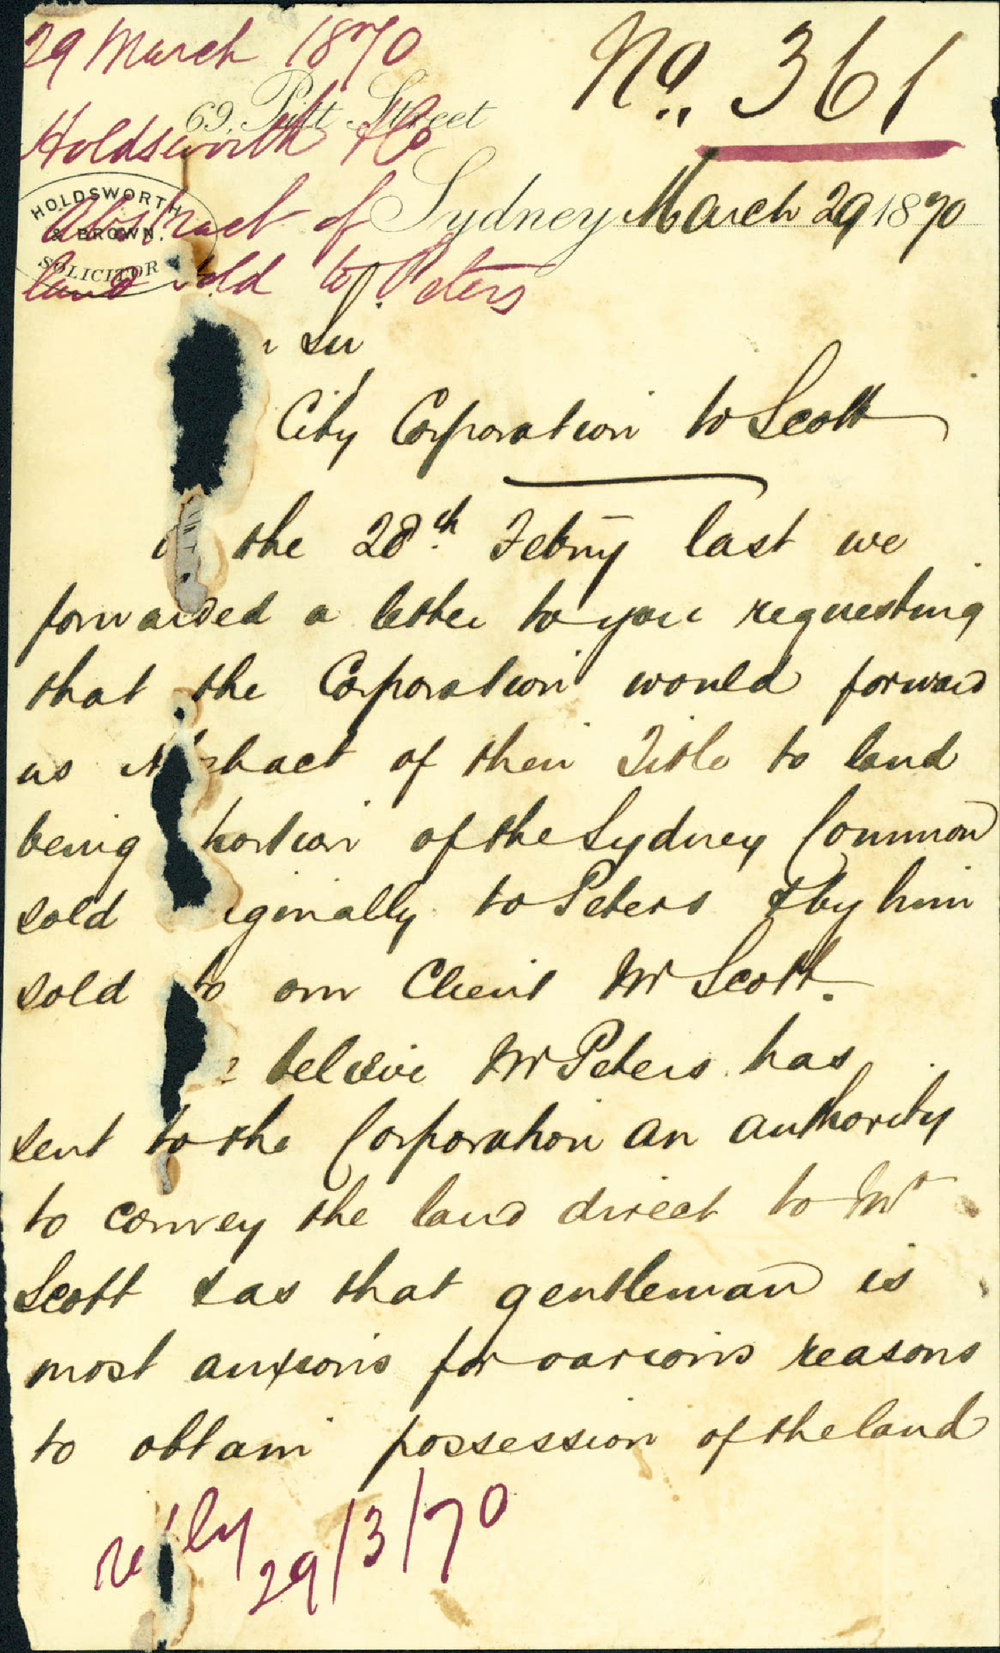 29 March 1870
No. 361
69, Pitt Street
Holdsworth & Co
HOLDSWORTH
& BROWN.
SOLICITOR
Sydney March 29 1870
Abstract of
land sold to J. Peters
Sir
City Corporation to Scott
the 28th. Febry last we
forwarded a letter to you requesting
that the Corporation would forward
us Abstract of their Title to land
being portion of the Sydney Common
sold iginally to Peters & by him
sold to our Client Mr Scott.
believe Mr Peters has
sent to the Corporation an authority
to convey the land direct to Mr
Scott & as that gentleman is
most anxious for various reasons
to obtain possession of the land
reply 29/3/70